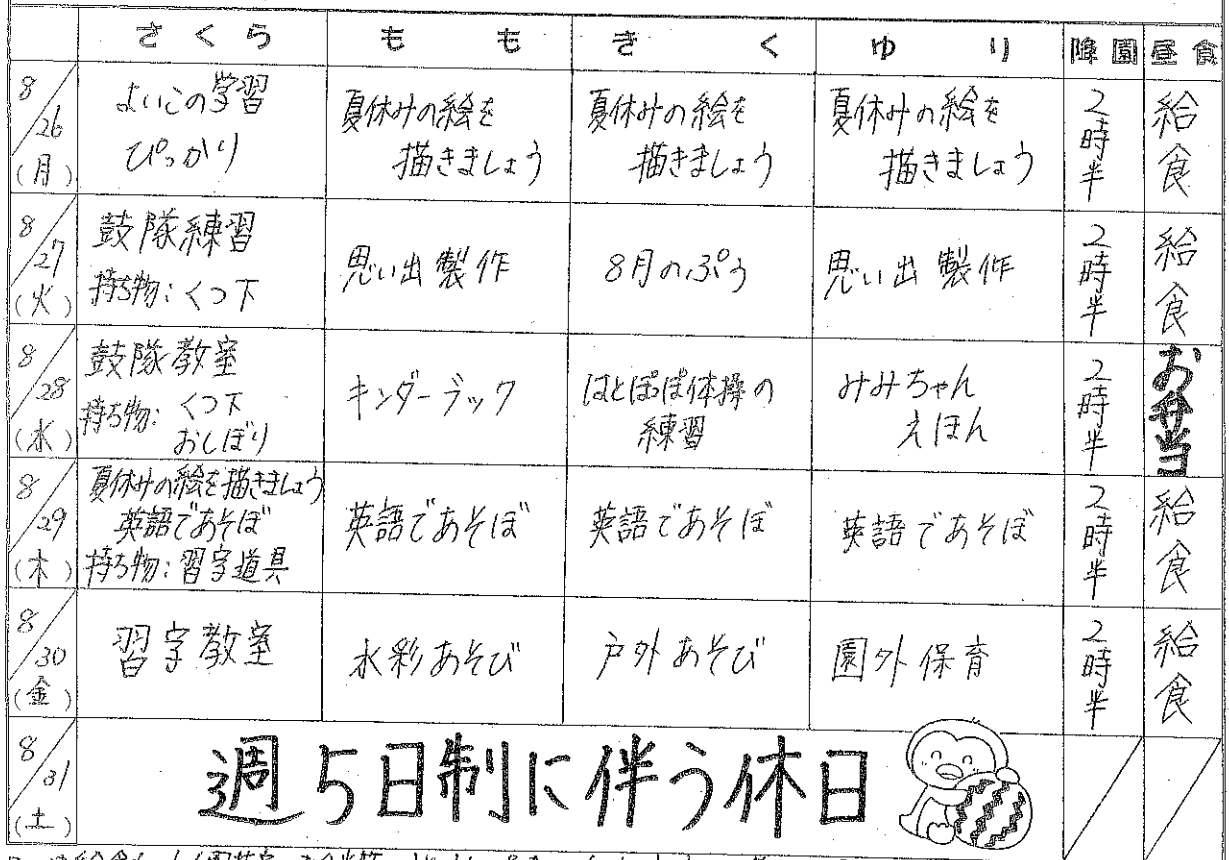 さくら もも きく ゆり 降園 昼食
8/26(月) よいこの学習 ぴっかり 夏休みの絵を描きましょう 夏休みの絵を描きましょう 夏休みの絵を描きましょう 2時半 給食
8/27(火) 鼓隊練習 持ち物:くつ下 思い出製作 8月のぷう 思い出製作 2時半 給食
8/28(水) 鼓隊教室 持ち物:くつ下 おしぼり キンダーブック はとぽっぽ体操の練習 みみちゃんえほん 2時半 お弁当
8/29(木) 夏休みの絵を描きましょう 英語であそぼ 持ち物:習字道具 英語であそぼ 英語であそぼ 英語であそぼ 2時半 給食
8/30(金) 習字教室 水彩あそび 戸外あそび 園外保育 2時半 給食
8/31(土) 週5日制に伴う休日